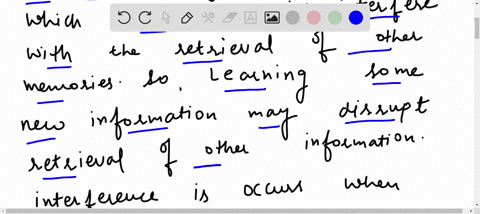 which interfere
with the retrieval of other
memories. So, Learning some
new information may disrupt
retrieval of other information.
interference is occurs when